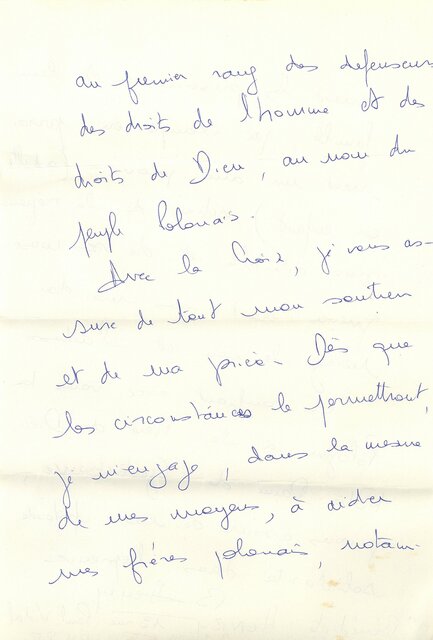 au premier rang des defenseurs
des droits de l'homme et des
droits de Dieu, au nom du
peuple Polonais.
Avec la Croix, je vous as-
sure de tout mon soutien
et de ma prière. Dès que
les circonstances le permettront,
je m'engage, dans la mesure
de mes moyens, à aider
mes frères polonais, notam-